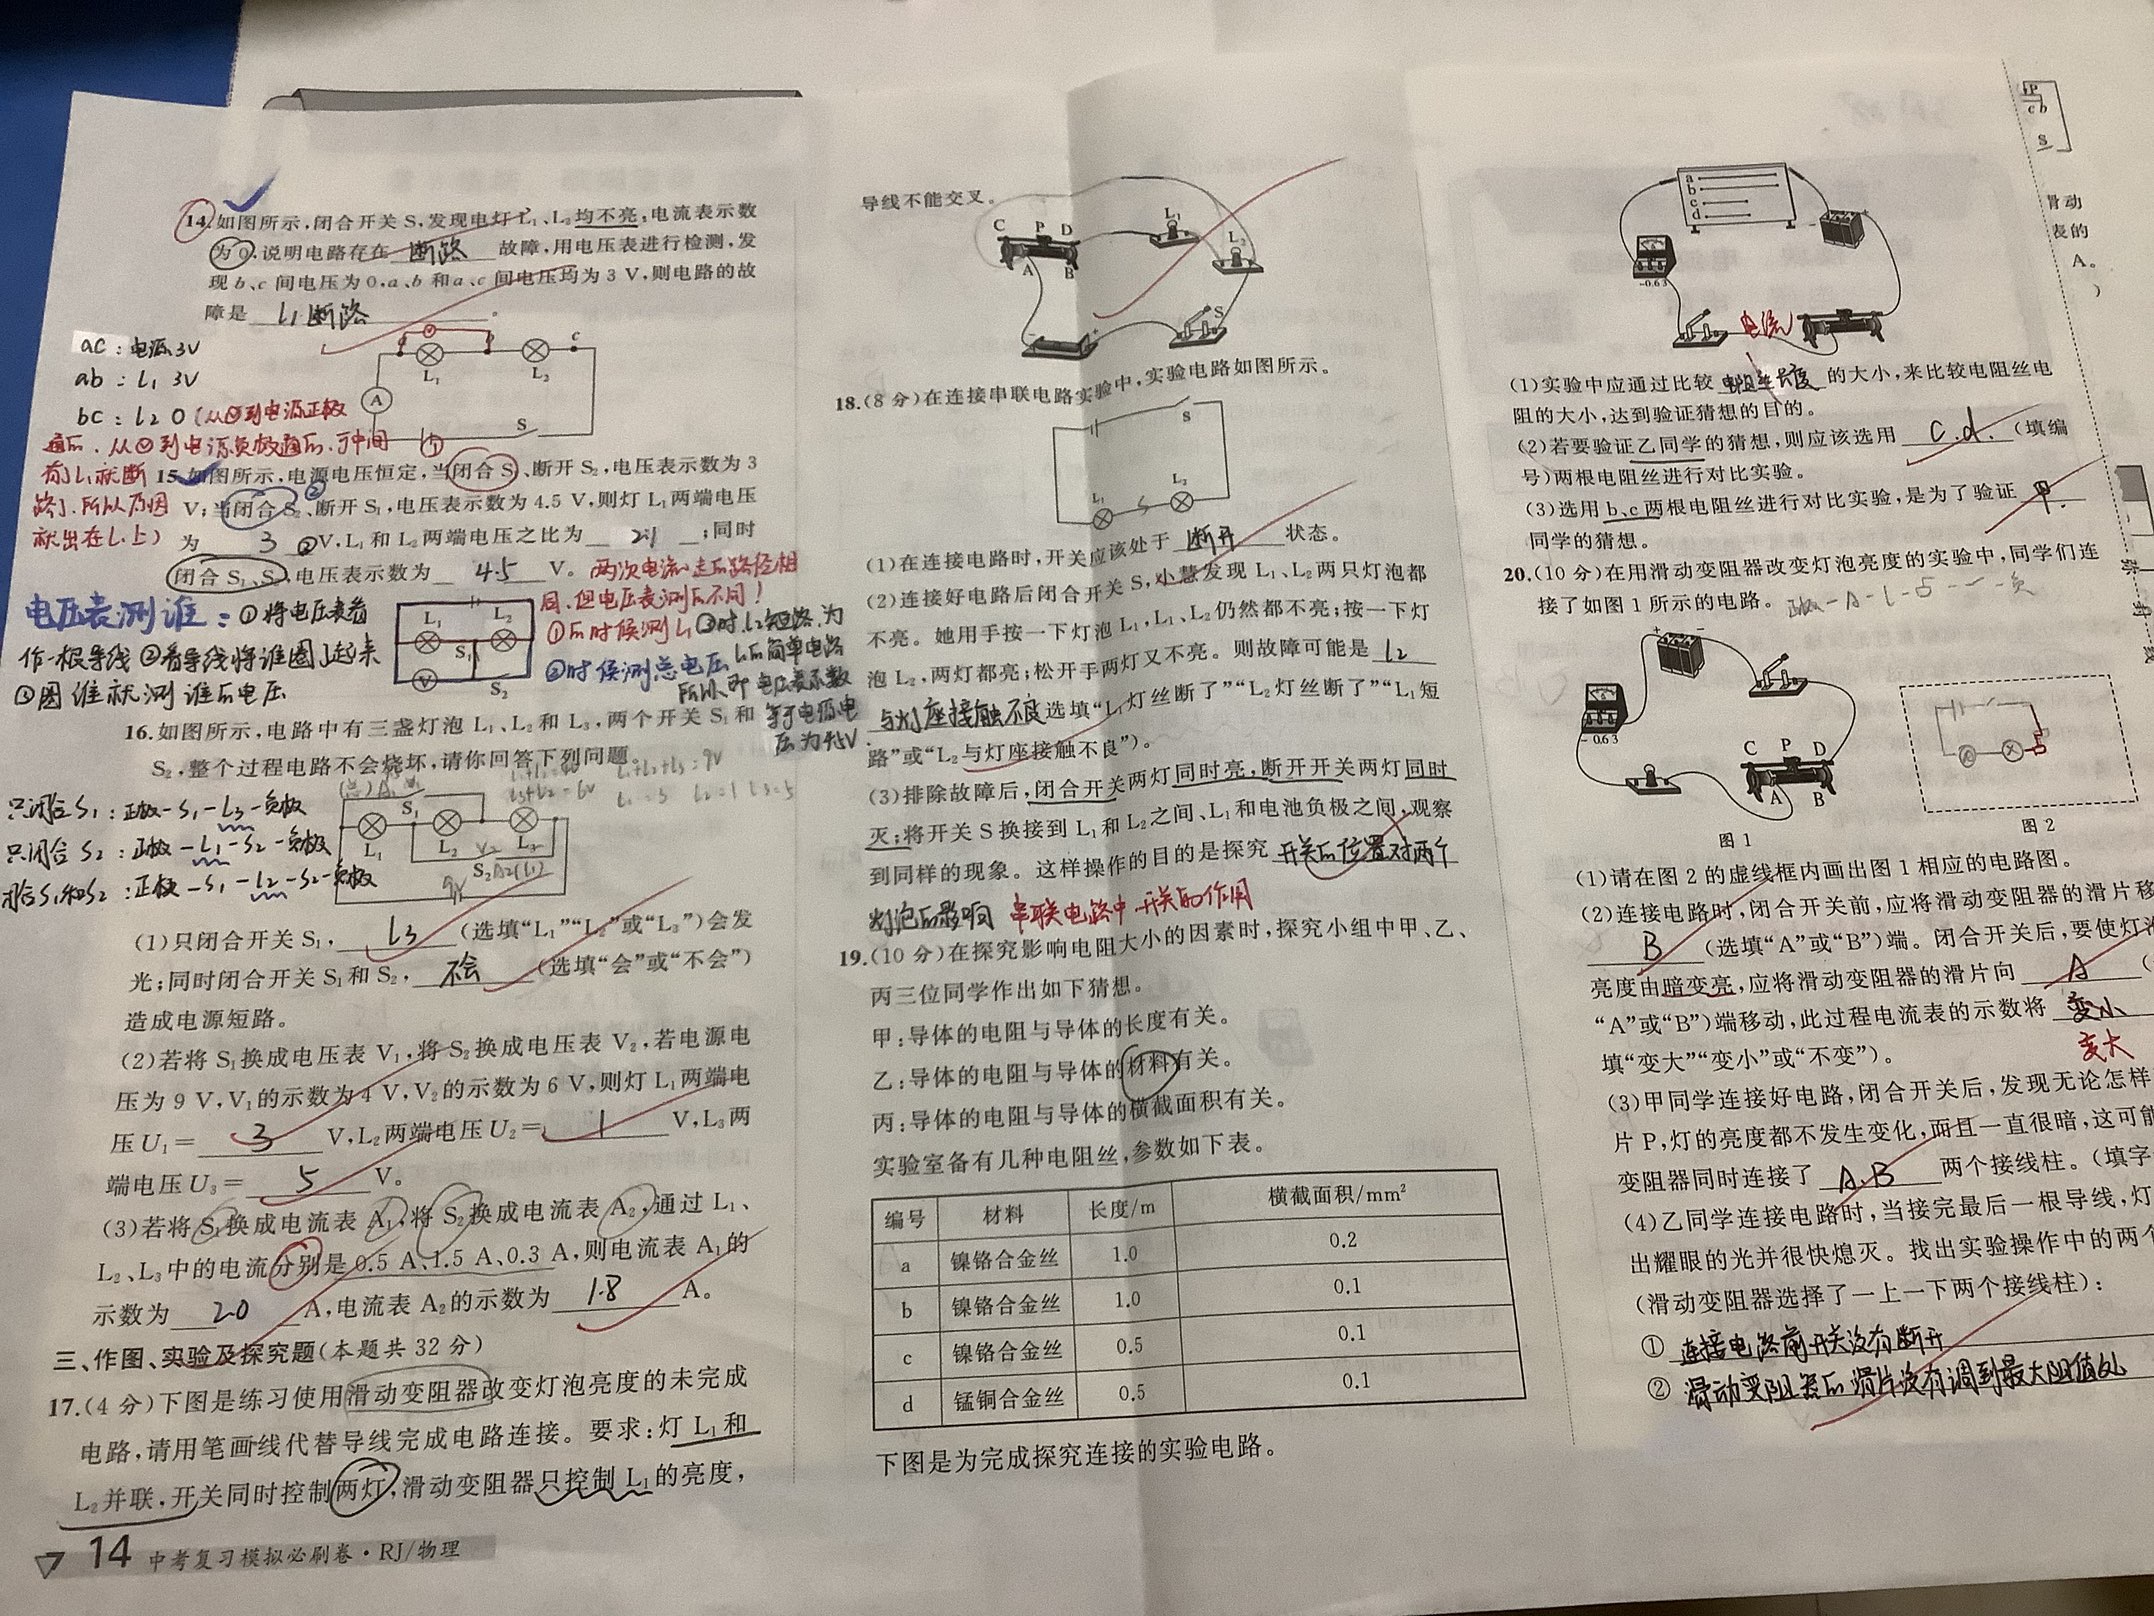 14.如图所示,闭合开关 S,发现电灯 L₁、L₂ 均不亮,电流表示数
为 0,说明电路存在 断路 故障,用电压表进行检测,发
现 b、c 间电压为 0,a、b 和 a、c 间电压均为 3 V,则电路的故
障是 L₁断路 。
ac:电源3V
ab:L₁ 3V
bc:L2 0
L₁
L₂
c
A
S
15.如图所示,电源电压恒定,当闭合 S₁、断开 S₂,电压表示数为 3
V;当闭合 S₂、断开 S₁,电压表示数为 4.5 V,则灯 L₁ 两端电压
为 3 V,L₁ 和 L₂ 两端电压之比为 2:1 ;同时
闭合 S₁、S₂,电压表示数为 4.5 V。
电压表测谁:①将电压表看
作一根导线②看导线将谁圈了起来
③圈谁就测谁的电压
L₁
L₂
S₁
V
S₂
两次电流走的路径相
同,但电压表测的不同!
①的时候测L₁
②时候测总电压
16.如图所示,电路中有三盏灯泡 L₁、L₂ 和 L₃,两个开关 S₁ 和
S₂,整个过程电路不会烧坏,请你回答下列问题。
只闭合S₁:正极-S₁-L₃-负极
只闭合S₂:正极-L₁-S₂-负极
闭合S₁和S₂:正极-S₁-L₂-S₂-负极
S₁
L₁
L₂
L₃
S₂
(1)只闭合开关 S₁, L₃ (选填“L₁”“L₂”或“L₃”)会发
光;同时闭合开关 S₁ 和 S₂, 不会 (选填“会”或“不会”)
造成电源短路。
(2)若将 S₁ 换成电压表 V₁,将 S₂ 换成电压表 V₂,若电源电
压为 9 V,V₁ 的示数为 4 V,V₂ 的示数为 6 V,则灯 L₁ 两端电
压 U₁= 3 V,L₂ 两端电压 U₂= 1 V,L₃ 两
端电压 U₃= 5 V。
(3)若将 S₁ 换成电流表 A₁,将 S₂ 换成电流表 A₂,通过 L₁、
L₂、L₃ 中的电流分别是 0.5 A、1.5 A、0.3 A,则电流表 A₁ 的
示数为 2.0 A,电流表 A₂ 的示数为 1.8 A。
三、作图、实验及探究题(本题共 32 分)
17.(4 分)下图是练习使用滑动变阻器改变灯泡亮度的未完成
电路,请用笔画线代替导线完成电路连接。要求:灯 L₁ 和
L₂ 并联,开关同时控制两灯,滑动变阻器只控制 L₁ 的亮度,
14 中考复习模拟必刷卷·RJ/物理
导线不能交叉。
C P D
A B
L₁
L₂
S
- +
18.(8 分)在连接串联电路实验中,实验电路如图所示。
S
L₁ L₂
(1)在连接电路时,开关应该处于 断开 状态。
(2)连接好电路后闭合开关 S,小慧发现 L₁、L₂ 两只灯泡都
不亮。她用手按一下灯泡 L₁,L₁、L₂ 仍然都不亮;按一下灯
泡 L₂,两灯都亮;松开手两灯又不亮。则故障可能是 L2
与灯座接触不良 选填“L₁ 灯丝断了”“L₂ 灯丝断了”“L₁ 短
路”或“L₂ 与灯座接触不良”)。
(3)排除故障后,闭合开关两灯同时亮,断开开关两灯同时
灭;将开关 S 换接到 L₁ 和 L₂ 之间、L₁ 和电池负极之间,观察
到同样的现象。这样操作的目的是探究 开关的位置对两个
灯泡的影响 串联电路中开关的作用
19.(10 分)在探究影响电阻大小的因素时,探究小组中甲、乙、
丙三位同学作出如下猜想。
甲:导体的电阻与导体的长度有关。
乙:导体的电阻与导体的材料有关。
丙:导体的电阻与导体的横截面积有关。
实验室备有几种电阻丝,参数如下表。
编号 材料 长度/m 横截面积/mm²
a 镍铬合金丝 1.0 0.2
b 镍铬合金丝 1.0 0.1
c 镍铬合金丝 0.5 0.1
d 锰铜合金丝 0.5 0.1
下图是为完成探究连接的实验电路。
a
b
c
d
-0.6 3
电流
(1)实验中应通过比较 电阻丝长度 的大小,来比较电阻丝电
阻的大小,达到验证猜想的目的。
(2)若要验证乙同学的猜想,则应该选用 c.d. (填编
号)两根电阻丝进行对比实验。
(3)选用 b、c 两根电阻丝进行对比实验,是为了验证 甲.
同学的猜想。
20.(10 分)在用滑动变阻器改变灯泡亮度的实验中,同学们连
接了如图 1 所示的电路。
- 0.6 3
C P D
A B
图 1
图 2
(1)请在图 2 的虚线框内画出图 1 相应的电路图。
(2)连接电路时,闭合开关前,应将滑动变阻器的滑片移
B (选填“A”或“B”)端。闭合开关后,要使灯泡
亮度由暗变亮,应将滑动变阻器的滑片向 A
“A”或“B”)端移动,此过程电流表的示数将 变小
变大
填“变大”“变小”或“不变”)。
(3)甲同学连接好电路,闭合开关后,发现无论怎样
片 P,灯的亮度都不发生变化,而且一直很暗,这可能
变阻器同时连接了 A.B 两个接线柱。(填字
(4)乙同学连接电路时,当接完最后一根导线,灯
出耀眼的光并很快熄灭。找出实验操作中的两个
(滑动变阻器选择了一上一下两个接线柱):
① 连接电路前开关没有断开
② 滑动变阻器的滑片没有调到最大阻值处
滑动
表的
A。
)